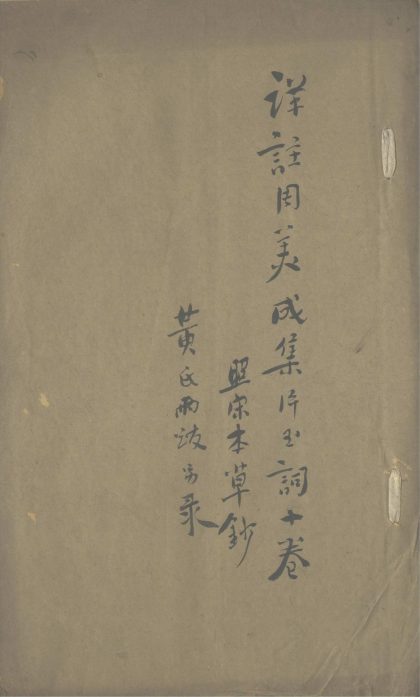 詳註周美成集片玉詞十卷
照宋本草鈔
黃氏兩跋另录